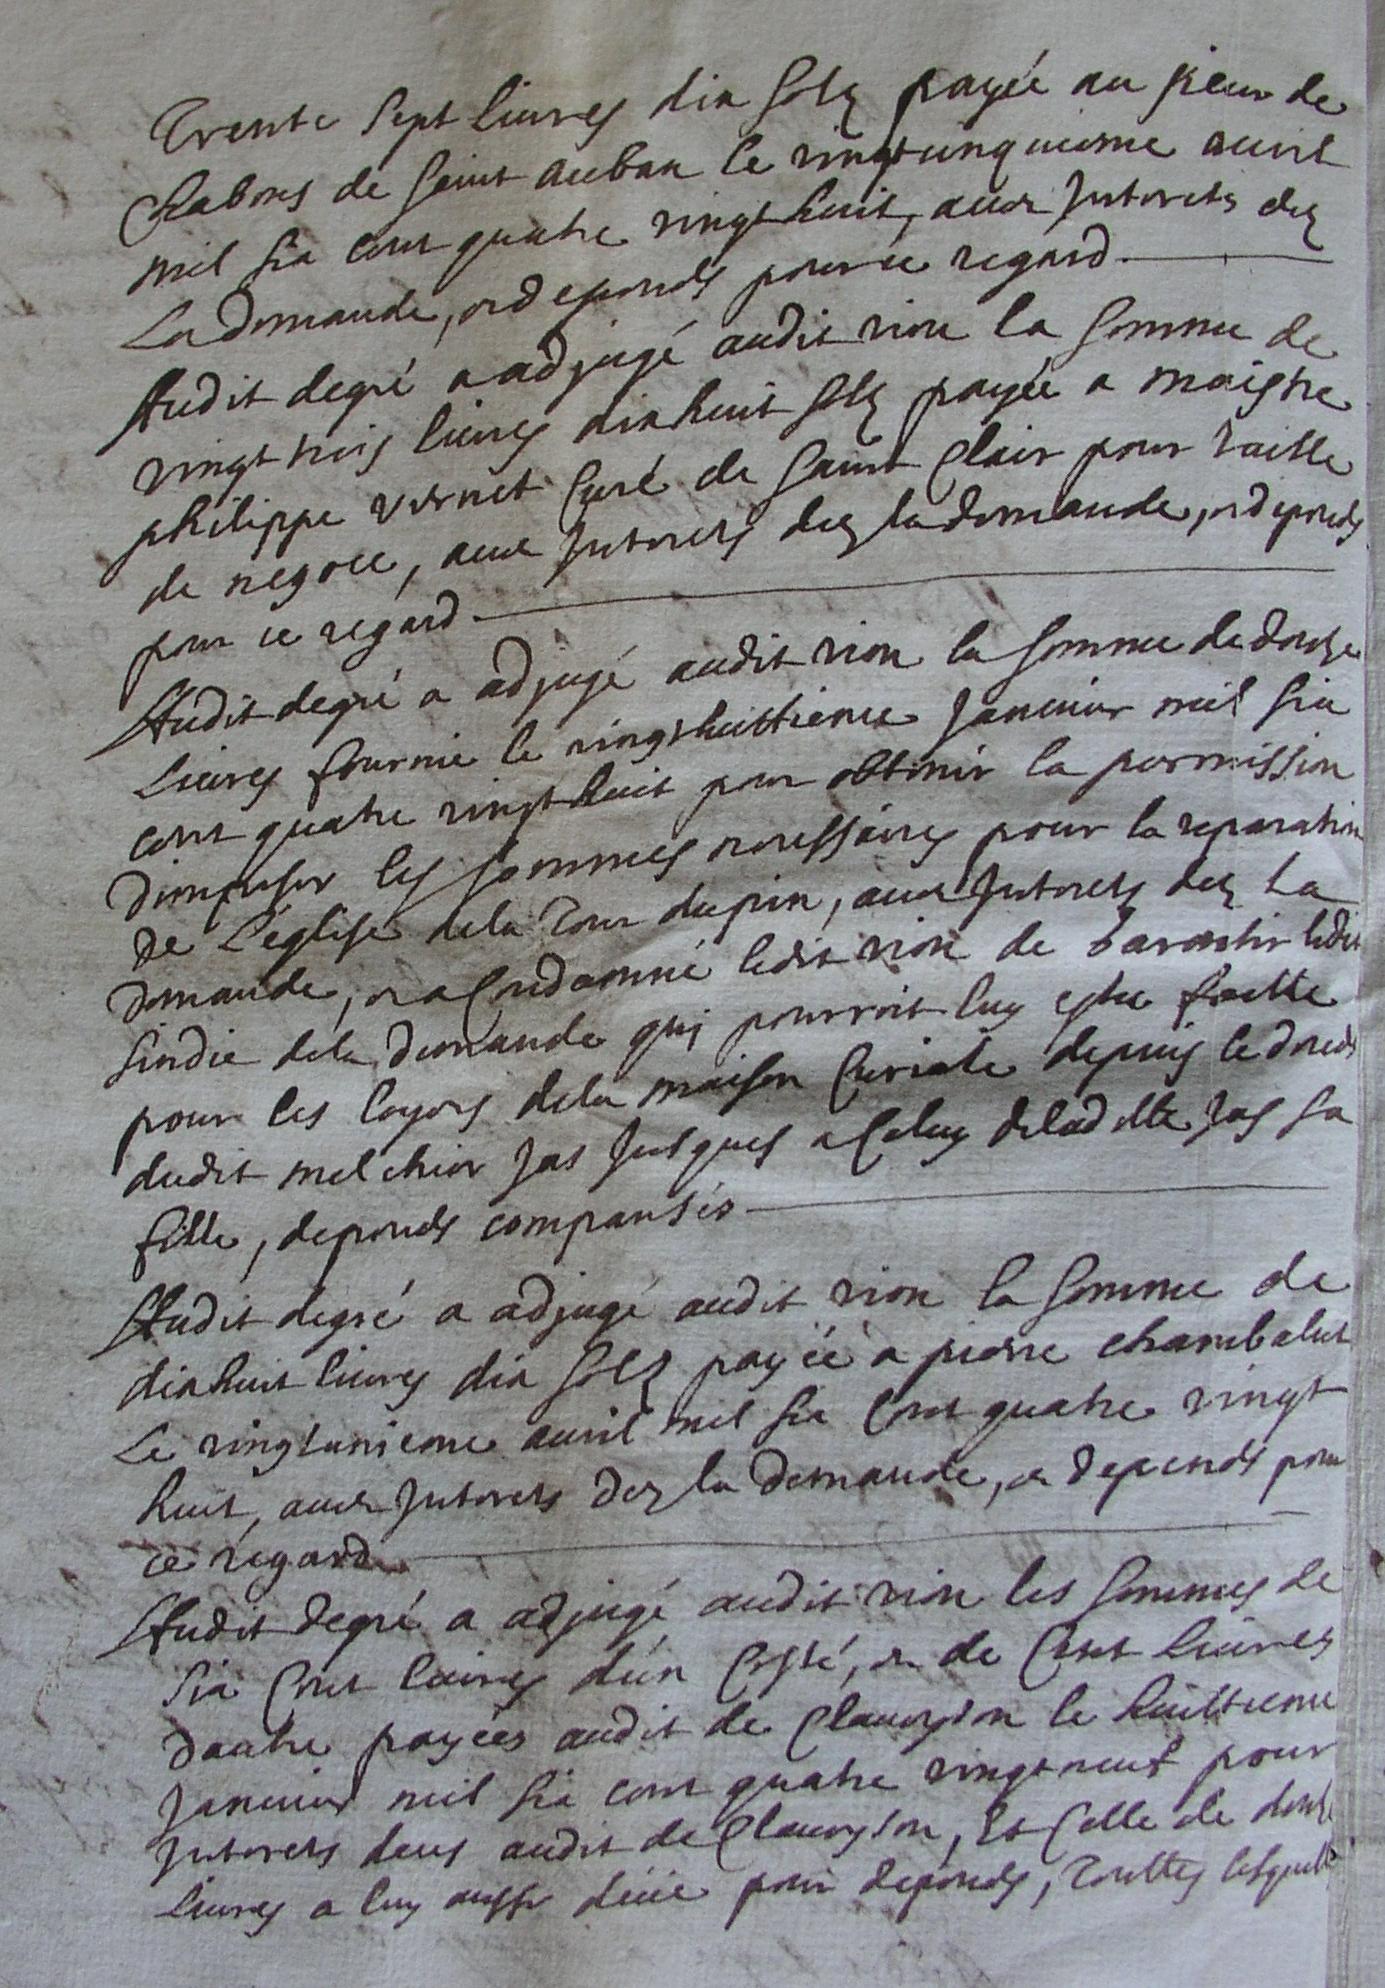 Trente sept livres dix solz payée au sieur de
Chabons de saint auban le vingt cinquieme avril
mil six cent quatre vingt huit, avec Interets dez
La demande, et depends pour ce regard
Audit degré a adjugé audit vion la somme de
vingt trois livres dix huit solz payée a maistre
philippe vernet Curé de saint Clair pour taille
de negoce, avec Interets dez la demande, et depends
pour ce regard
Audit degré a adjugé audit vion la somme de douze
Livres fournie le vingt huittieme Janvier mil six
cent quatre vingt huit pour obtenir la permission
d'imposer les sommes necessaires pour la reparation
de L'église de la Tour du pin, avec Interets dez La
demande, et a Condamné ledit vion de Garantir ledit
sindic de la demande qui pourroit luy estre faitte
pour les loyers de la maison Curiale depuis le deceds
dudit melchior Jas Jusques a Celuy de laditte Jas sa
fille, depends compansés
Audit degré a adjugé audit vion la somme de
dix huit livres dix solz payée a pierre chambalut
Le vingt unieme avril mil six Cent quatre vingt
huit, avec Interets dez la demande, et depends pour
ce regard
Audit degré a adjugé audit vion les sommes de
six Cent livres d'un Costé, et de Cent livres
d'autre payées audit de Claveyson le huittieme
Janvier mil six cent quatre vingt neuf pour
Interets deus audit de Claveyson, Et Celle de douze
livres a luy aussy deüe pour depends, Touttes lesquelles